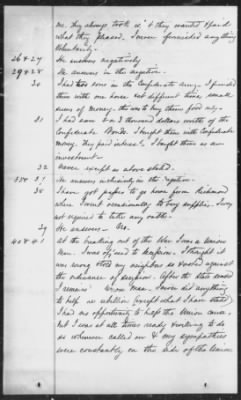 me. They always took it & they wanted & paid
what they pleased. I never furnished anything
voluntarily.
26 & 27 He answers negatively
28 & 29 He answers in the negative.
30 I had two sons in the Confederate army. I furnished
them with one horse and different times small
sums of money. this was to buy them food only.
31 I had some 2 or 3 thousand dollars worth of the
Confederate Bonds. I bought them with Confederate
money. They paid interest & I bought them as an
investment
32 Never except as above stated.
He answers in the negative.
38 I have got passes to go home from Richmond
when I went occasionally to buy supplies. I was
not required to take any oath.
39 He answers No.
40 & 41 At the breaking out of the War I was a Union
Man. I was opposed to Secession. I thought it
was wrong told my neighbors so & voted against
the ordinance of secession. After the state seceded
I remained Union man. I never did anything
to help the rebellion except what I have stated
I had no opportunity to help the Union cause,
but I was at all times ready & willing to do
so whenever called on & my sympathies
were constantly on the side of the Union